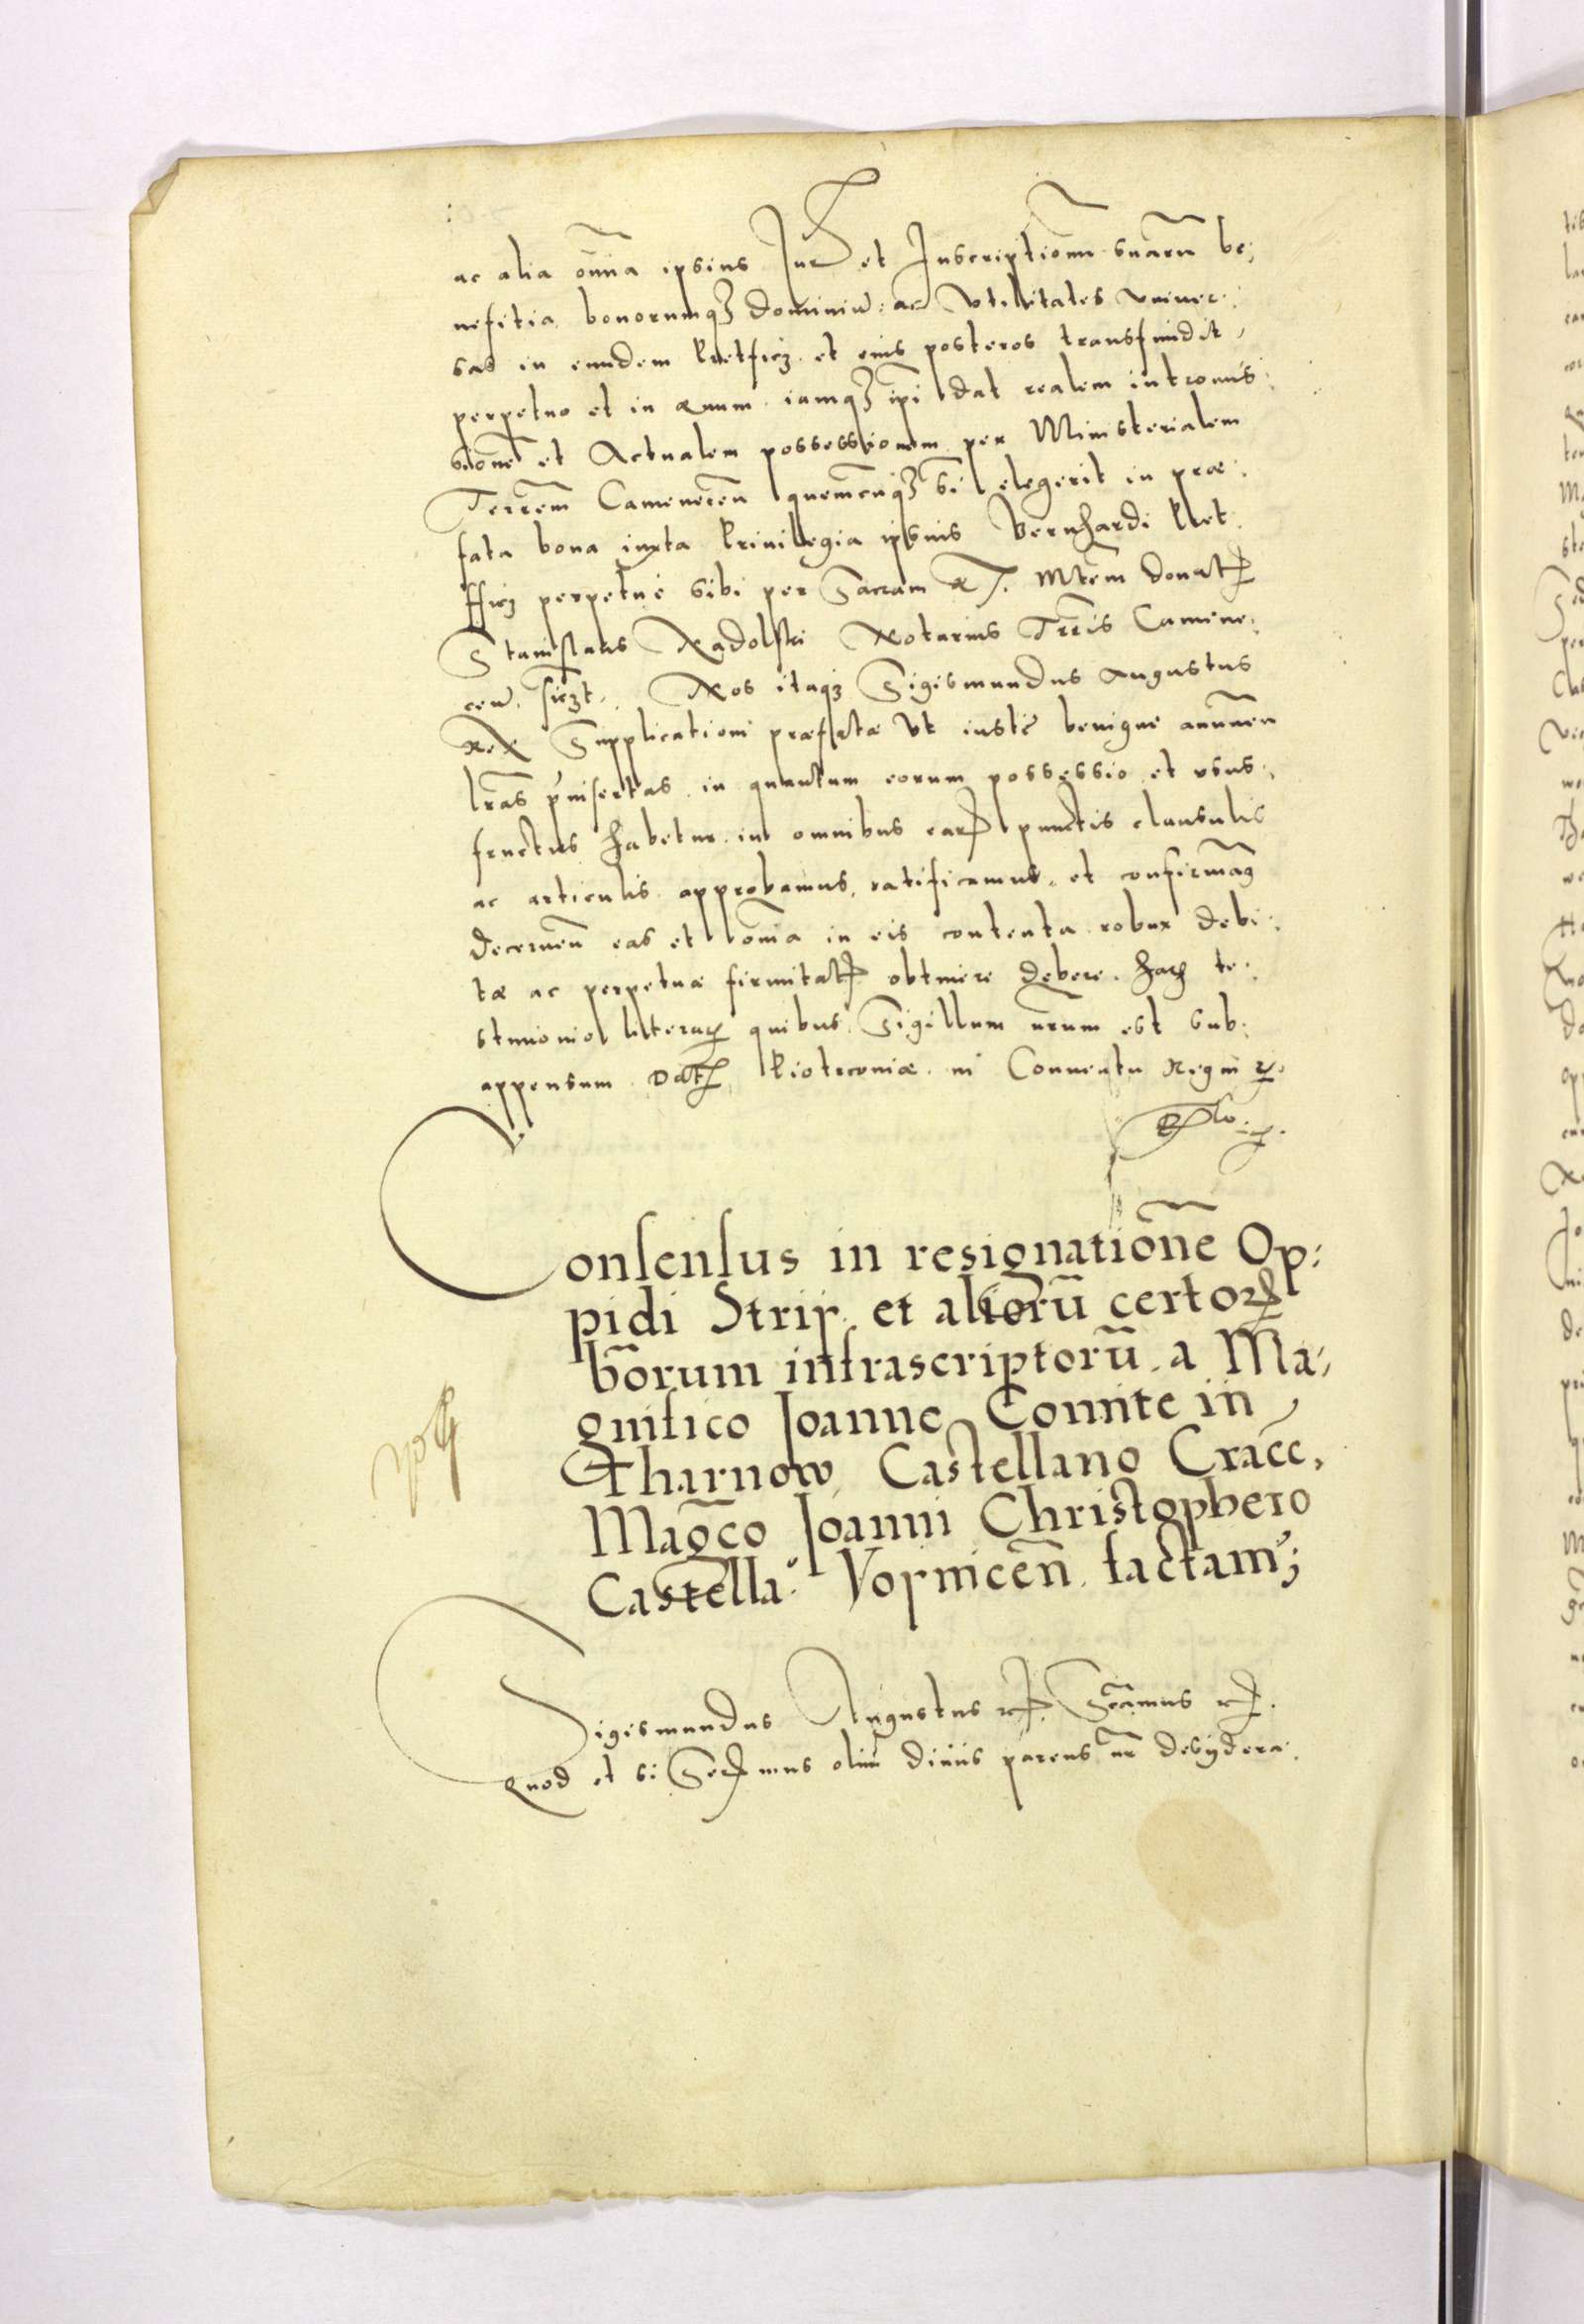 ac alia om̃ia ipsius Jura et Inscriptionũ suarũ be:
nefitia bonorumq3 dominiũ: ac vtilitates vniuer:
sas in eundem Pretficz et eius posteros transfundit,
perpetuo et in æuum iamq3 ip̃i dat realem intromis:
sionẽ et Actualem possessionem per Ministerialem
Terrẽm Camenecẽn quemcũq3 sibi elegerit in præ:
fata bona iuxta Priuilegia ipsius Bernhardi Pret
fficz perpetue sibi per Sacram R. Mtẽm donat
Stanislaus Nadolski Notarius Tr̃ris Camene:
ceñ. scrzt. Nos itaq3 Sigismundus Augustus
Rex Supplicationi præfatæ Vt iustæ benigne annuen
lr̃as p̃insertas in quantum eorum possessio et vsus:
fructus habetur in omnibus ear punctis clausulis
ac articulis approbamus, ratificamus, et confirmam9
decernen̄ eas et om̃ia in eis contenta robur debi:
tæ ac perpetuæ firmitat obtinere debere. har te:
stimonio literar quibus Sigillum nr̃um est sub:
appensum Dat Piotrcouiæ in Conuentu Regni

Consensus in resignationẽ Op:
pidi Strij et aliorũ certor
bõrum infrascriptorũ a Ma:
gnifico Joanne Comite in
Tharnow Castellano Cracc,
Mag̃co Joanni Christophero
Castella: Voynicẽn factam;
Sigismundus Augustus Significamus
Quod et si Ser mus olim diuus parens nr̃ desydera